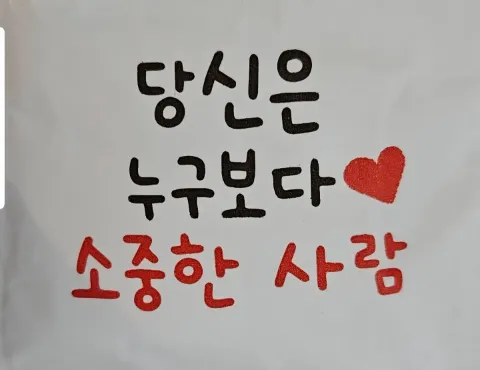 당신은
누구보다
소중한 사람